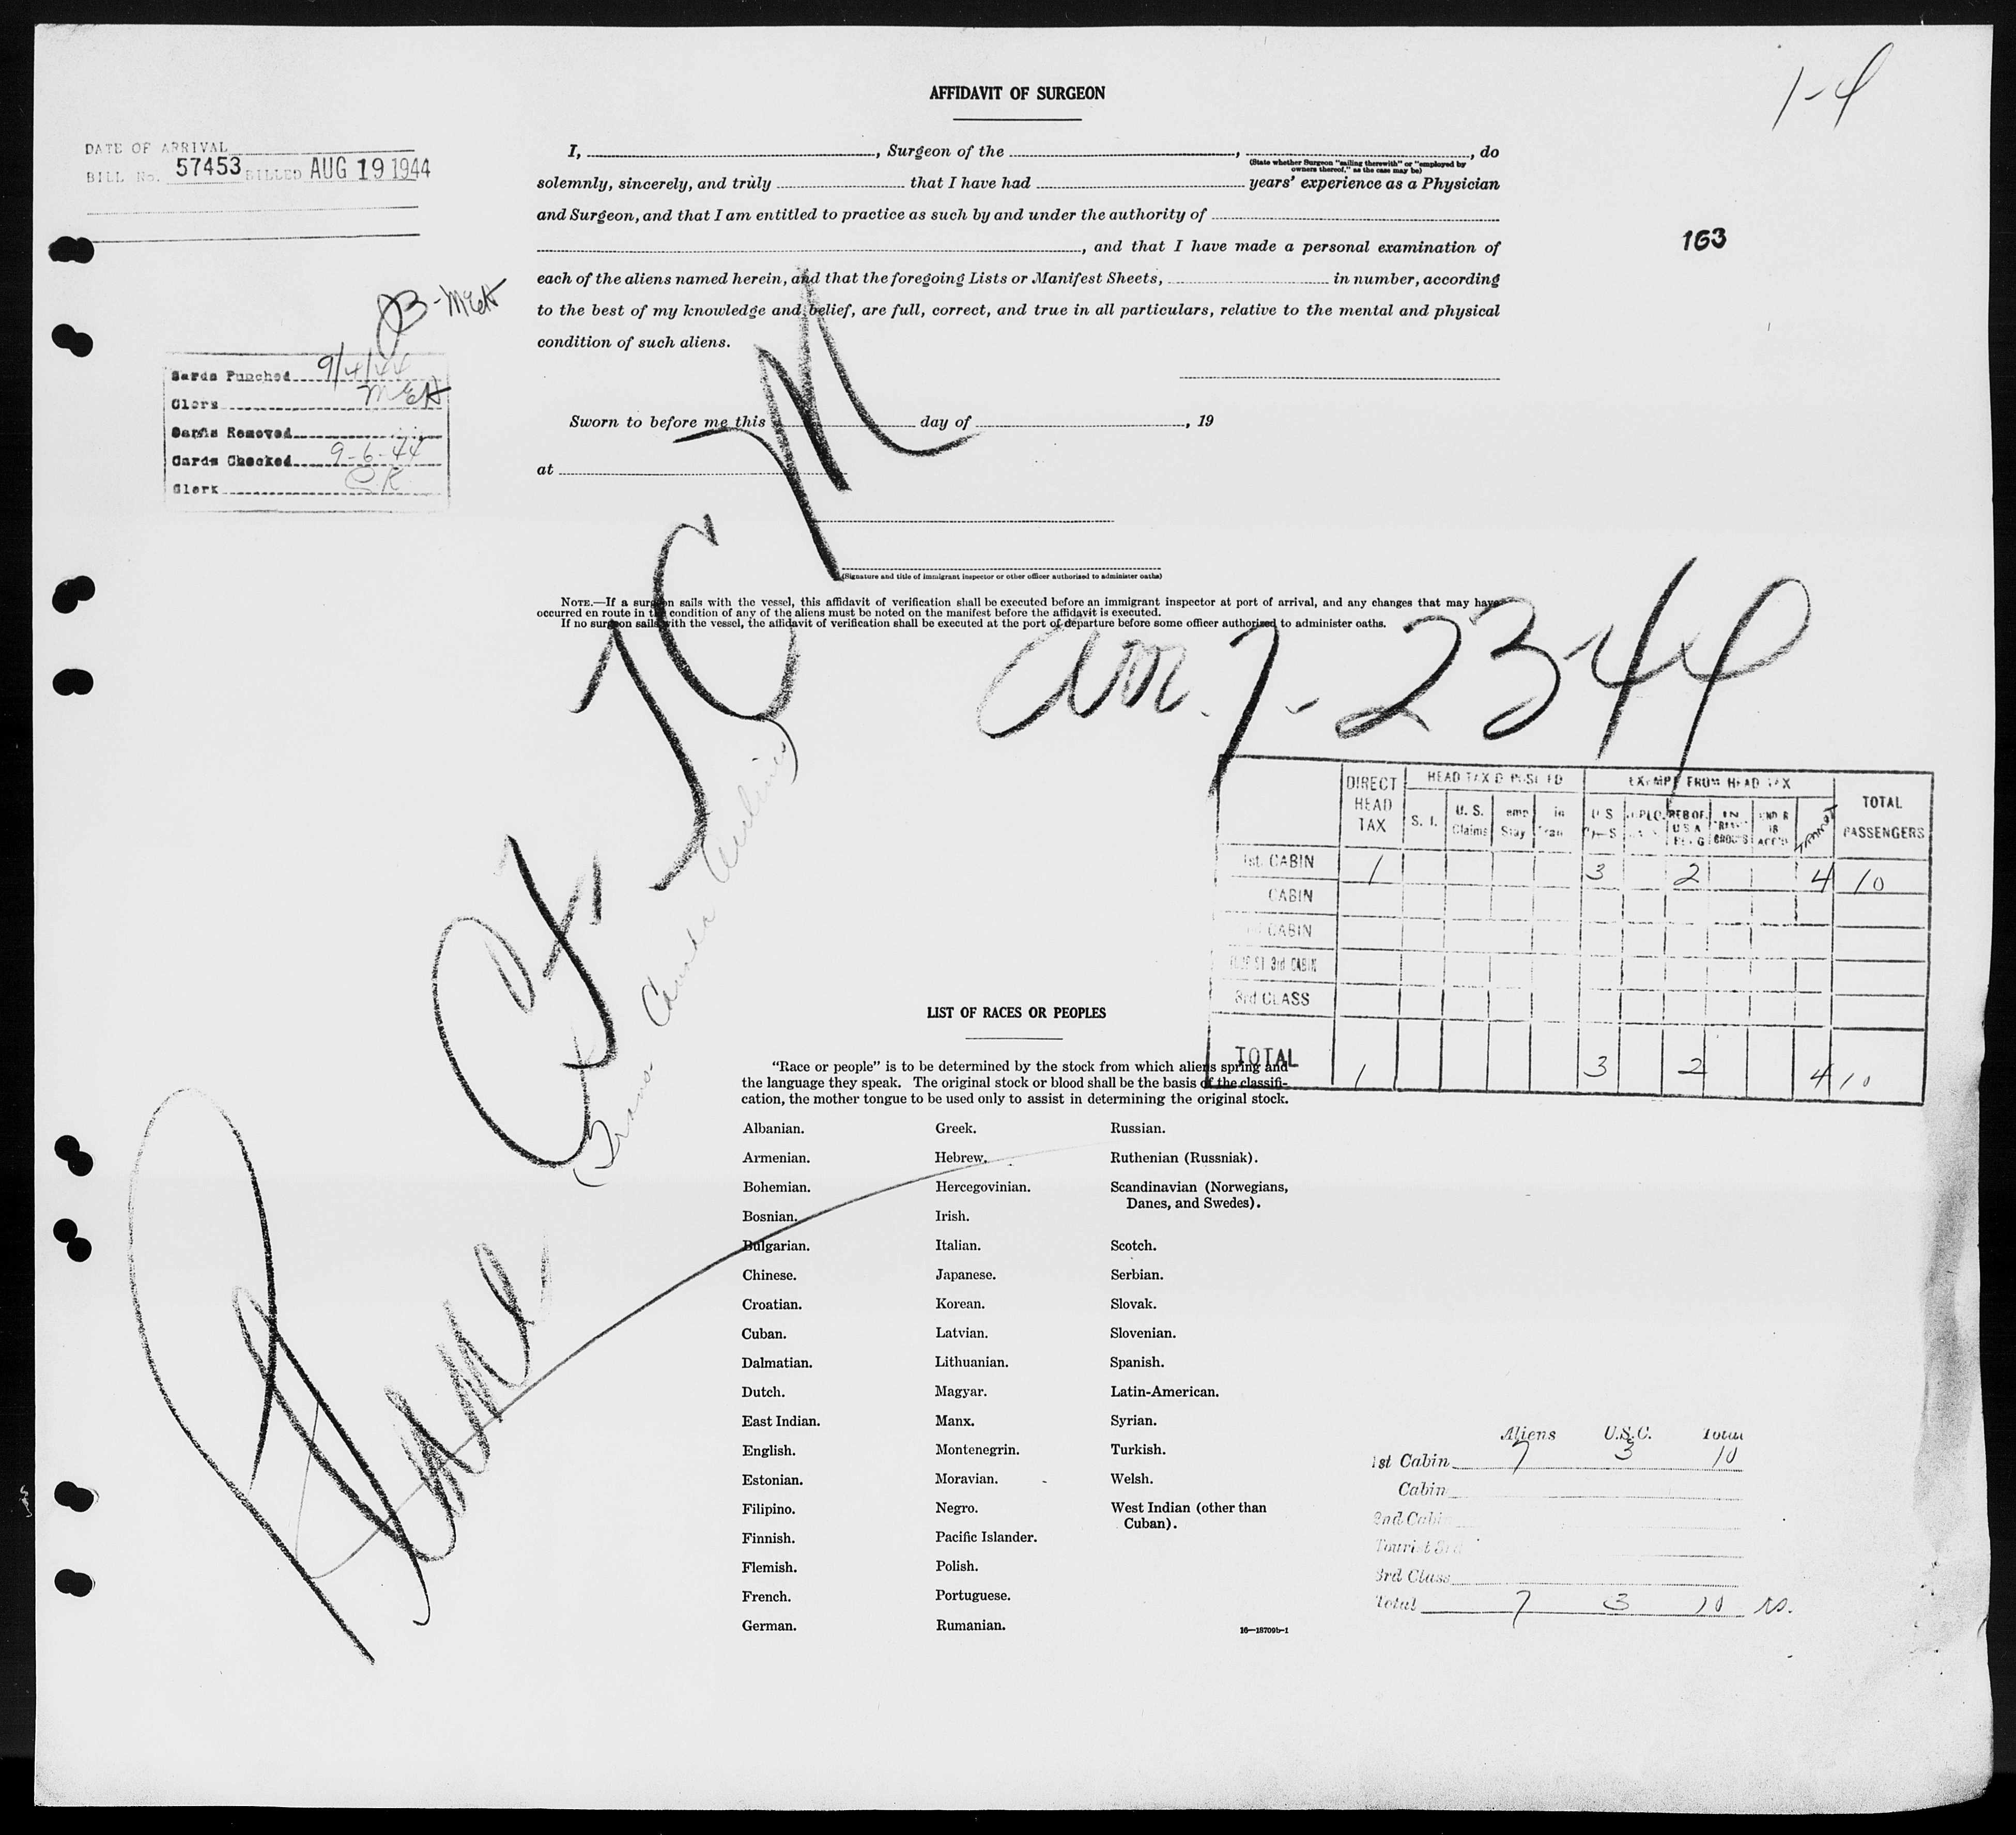 1-4
AFFIDAVIT OF SURGEON
DATE OF ARRIVAL
BILL No. 57453 BILLED AUG 19 1944
I, , Surgeon of the , , do
(State whether Surgeon "sailing therewith" or "employed by
owners thereof," as the case may be)
solemnly, sincerely, and truly that I have had years' experience as a Physician
and Surgeon, and that I am entitled to practice as such by and under the authority of
, and that I have made a personal examination of
163
each of the aliens named herein, and that the foregoing Lists or Manifest Sheets, in number, according
to the best of my knowledge and belief, are full, correct, and true in all particulars, relative to the mental and physical
condition of such aliens.
JB-MEH
Cards Punched 9/4/44
Clerk MEH
Cards Removed
Cards Checked 9-6-44
Clerk CK
Sworn to before me this day of , 19
at
(Signature and title of immigrant inspector or other officer authorized to administer oaths)
NOTE.—If a surgeon sails with the vessel, this affidavit of verification shall be executed before an immigrant inspector at port of arrival, and any changes that may have
occurred en route in the condition of any of the aliens must be noted on the manifest before the affidavit is executed.
If no surgeon sails with the vessel, the affidavit of verification shall be executed at the port of departure before some officer authorized to administer oaths.
Arr. 7-23-44
Plane CF-TCM
(Trans-Canada Airlines)
DIRECT HEAD TAX
HEAD TAX DEPOSITED
EXEMPT FROM HEAD TAX
TOTAL PASSENGERS
S. I. U. S. Claims Temp Stay in Tran
1st CABIN 1 3 2 4 10
CABIN
CABIN
TOURIST 3rd CABIN
3rd CLASS
TOTAL 1 3 2 4 10
LIST OF RACES OR PEOPLES
"Race or people" is to be determined by the stock from which aliens spring and
the language they speak. The original stock or blood shall be the basis of the classifi-
cation, the mother tongue to be used only to assist in determining the original stock.
Albanian.
Armenian.
Bohemian.
Bosnian.
Bulgarian.
Chinese.
Croatian.
Cuban.
Dalmatian.
Dutch.
East Indian.
English.
Estonian.
Filipino.
Finnish.
Flemish.
French.
German.
Greek.
Hebrew.
Hercegovinian.
Irish.
Italian.
Japanese.
Korean.
Latvian.
Lithuanian.
Magyar.
Manx.
Montenegrin.
Moravian.
Negro.
Pacific Islander.
Polish.
Portuguese.
Rumanian.
Russian.
Ruthenian (Russniak).
Scandinavian (Norwegians,
Danes, and Swedes).
Scotch.
Serbian.
Slovak.
Slovenian.
Spanish.
Latin-American.
Syrian.
Turkish.
Welsh.
West Indian (other than
Cuban).
16—18709b-1
Aliens U.S.C. Total
1st Cabin 7 3 10
Cabin
2nd Cabin
Tourist 3rd
3rd Class
Total 7 3 10